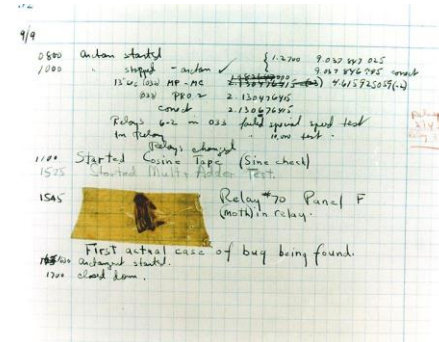 9/9
0800 antan started
1000 " stopped - antan ✓ { 1.2700 9.037 847 025
9.037 846 795 correct
13"uc (032) MP-MC 4.615925059(-2)
(033) PRO 2 2.130476415
correct 2.130676415
Relays 6-2 in 033 failed special speed test
in relay " 10.00 test.
Relays changed
1100 Started Cosine Tape (Sine check)
1525 Started Multi Adder Test.
1545 Relay #70 Panel F
(moth) in relay.
First actual case of bug being found.
1630 antangent started.
1700 closed down.